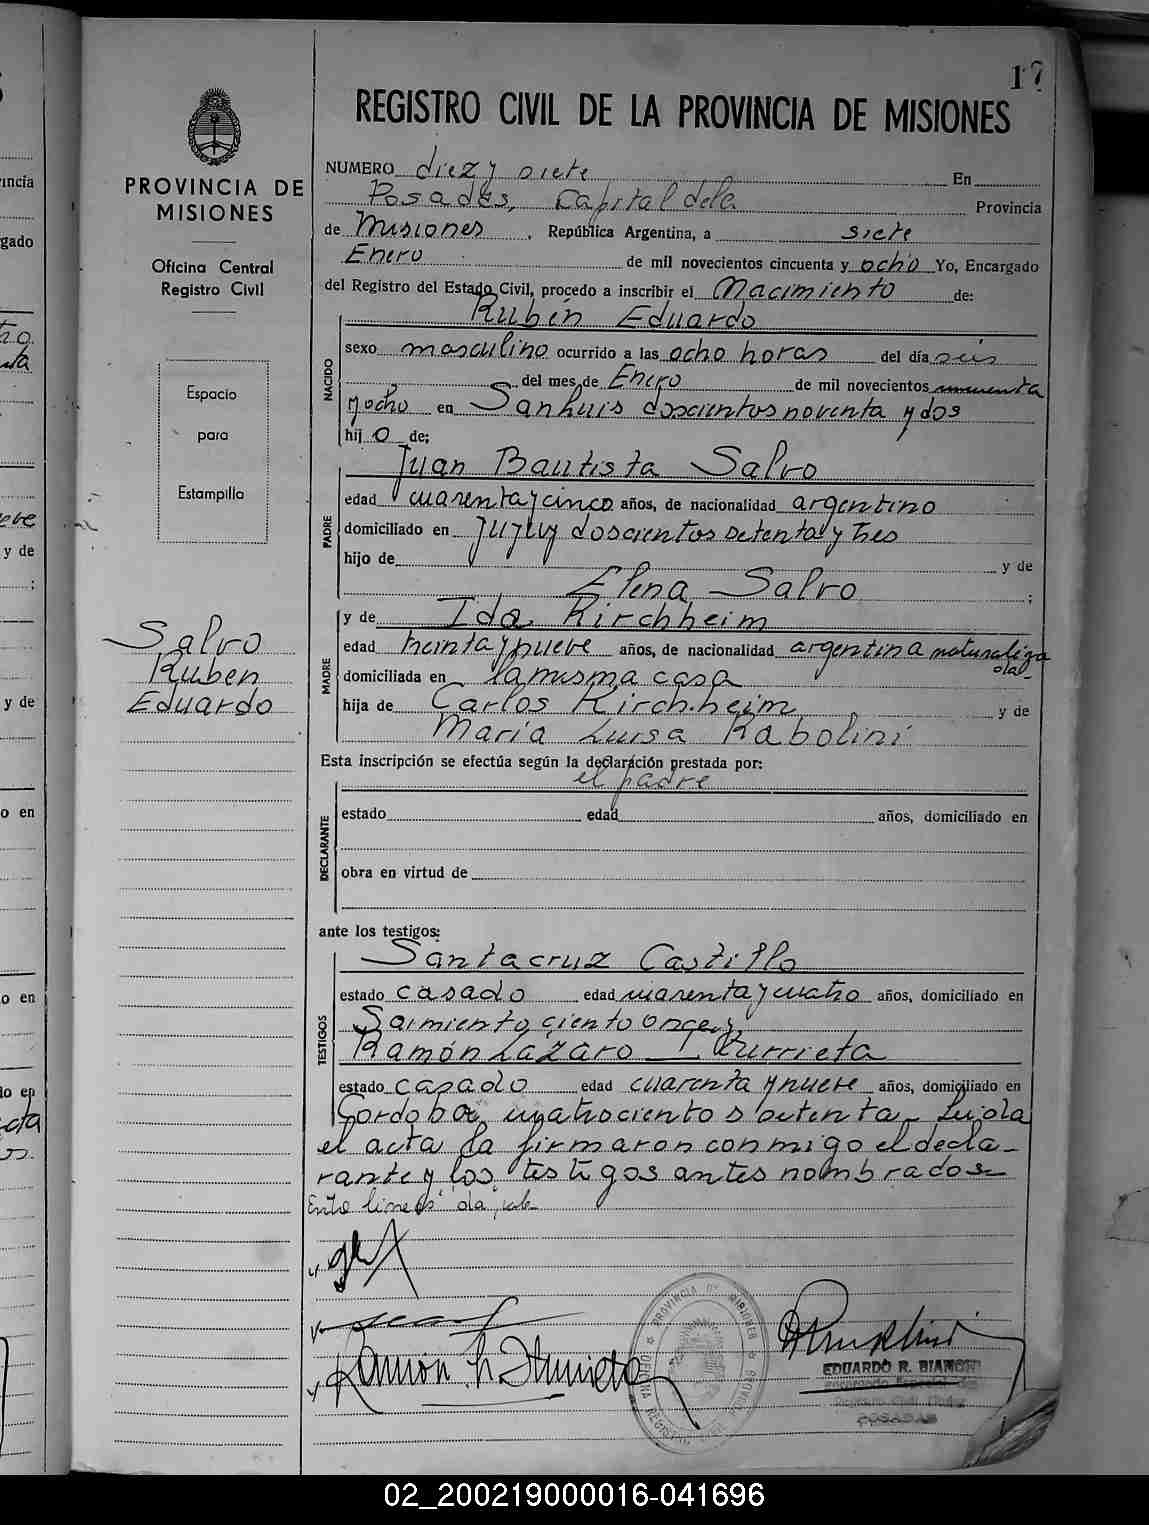 17
REGISTRO CIVIL DE LA PROVINCIA DE MISIONES
PROVINCIA DE
MISIONES
Oficina Central
Registro Civil
Espacio
para
Estampilla
Salvo
Ruben
Eduardo
NUMERO diez y siete En
Posadas, Capital de la Provincia
de Misiones, República Argentina, a siete
Enero de mil novecientos cincuenta y ocho Yo, Encargado
del Registro del Estado Civil, procedo a inscribir el Nacimiento de:
Rubén Eduardo
NACIDO
sexo masculino ocurrido a las ocho horas del día seis
del mes de Enero de mil novecientos cincuenta
y ocho en San Luis doscientos noventa y dos
hijo de:
Juan Bautista Salvo
PADRE
edad cuarenta y cinco años, de nacionalidad argentino
domiciliado en Jujuy doscientos setenta y tres
hijo de y de
Elena Salvo ;
y de Ida Kirchheim
MADRE
edad treinta y nueve años, de nacionalidad argentina naturaliza
da
domiciliada en la misma casa
hija de Carlos Kirchheim y de
María Luisa Rabolini
Esta inscripción se efectúa según la declaración prestada por:
el padre
DECLARANTE
estado edad años, domiciliado en
obra en virtud de
ante los testigos:
Santacruz Castillo
TESTIGOS
estado casado edad cuarenta y cuatro años, domiciliado en
Sarmiento ciento once y
Ramón Lázaro Iturrieta
estado casado edad cuarenta y nueve años, domiciliado en
Córdoba cuatrocientos setenta. Leída
el acta la firmaron conmigo el decla-
rante y los testigos antes nombrados
Entre lineas "da", vale
Ramón L. Iturrieta
PROVINCIA DE MISIONES
OFICINA REGISTRO CIVIL POSADAS
EDUARDO R. BIANCHI
POSADAS
02_200219000016-041696